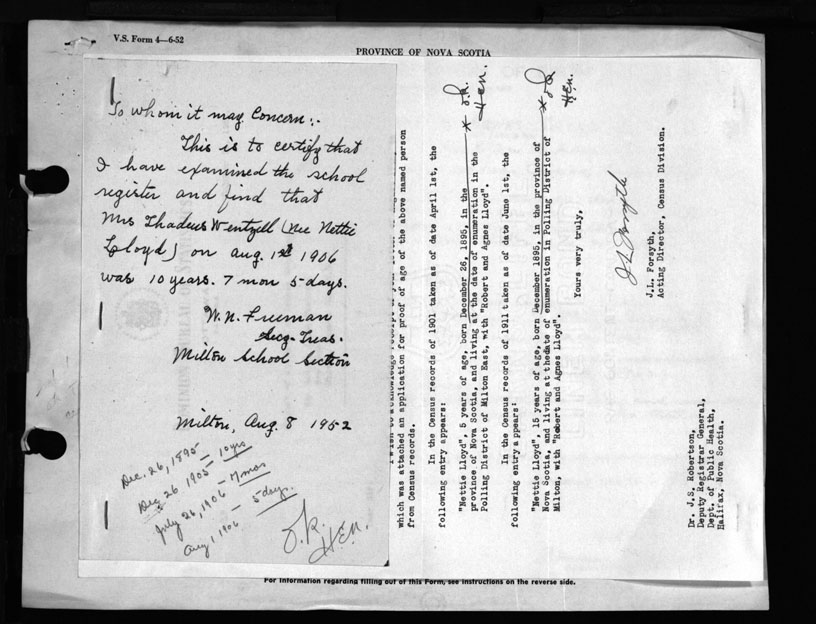 V.S. Form 4—6-52
PROVINCE OF NOVA SCOTIA
To whom it may Concern:.
This is to certify that
I have examined the school
register and find that
Mrs Thadeus Wentzell (nee Nettie
Lloyd) on Aug. 1st 1906
was 10 years. 7 mon 5 days.
W. N. Freeman
Secy-Treas.
Milton School Section
Milton, Aug. 8 1952
Dec. 26, 1895 — 10 yrs
Dec 26 1905 — 7 mos
July 26, 1906 — 5 days.
Aug 1, 1906
O.K.
H.E.N.
which was attached an application for proof of age of the above named person
from Census records.
In the Census records of 1901 taken as of date April 1st, the
following entry appears:
"Nettie Lloyd", 5 years of age, born December 26, 1895, in the
province of Nova Scotia, and living at the date of enumeration in the
Polling District of Milton East, with "Robert and Agnes Lloyd".
In the Census records of 1911 taken as of date June 1st, the
following entry appears:
"Nettie Lloyd", 15 years of age, born December 1895, in the province of
Nova Scotia, and living at thedate of enumeration in Polling District of
Milton, with "Robert and Agnes Lloyd".
Yours very truly,
J L Forsyth
J.L. Forsyth,
Acting Director, Census Division.
Dr. J.S. Robertson,
Deputy Registrar General,
Dept. of Public Health,
Halifax, Nova Scotia.
For information regarding filling out of this Form, see instructions on the reverse side.